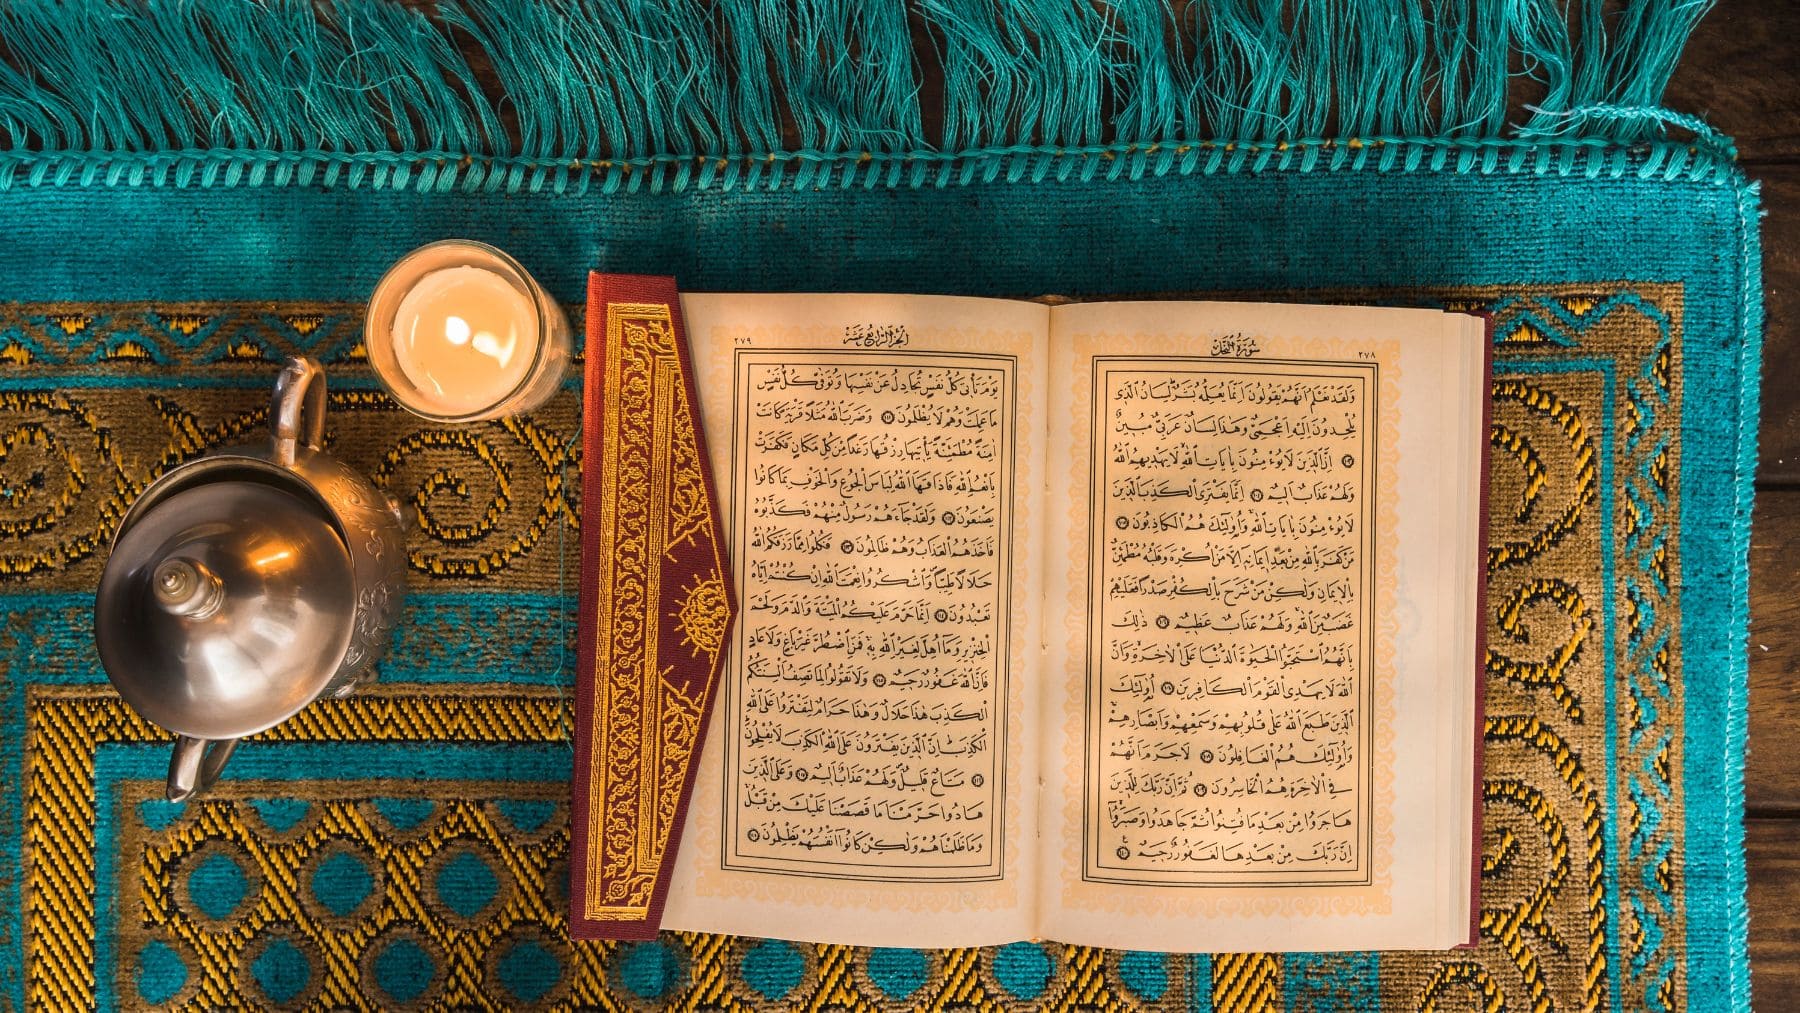 سُورَةُ النَّحْلِ ٢٧٨
وَلَقَدْ نَعْلَمُ اَنَّهُمْ يَقُولُونَ اِنَّمَا يُعَلِّمُهُ بَشَرٌ لِسَانُ الَّذِي
يُلْحِدُونَ اِلَيْهِ اَعْجَمِيٌّ وَهٰذَا لِسَانٌ عَرَبِيٌّ مُبِينٌ
﴿١٠٣﴾ اِنَّ الَّذِينَ لَا يُؤْمِنُونَ بِاٰيَاتِ اللّٰهِ لَا يَهْدِيهِمُ اللّٰهُ
وَلَهُمْ عَذَابٌ اَلِيمٌ ﴿١٠٤﴾ اِنَّمَا يَفْتَرِي الْكَذِبَ الَّذِينَ
لَا يُؤْمِنُونَ بِاٰيَاتِ اللّٰهِ وَاُولٰئِكَ هُمُ الْكَاذِبُونَ ﴿١٠٥﴾
مَنْ كَفَرَ بِاللّٰهِ مِنْ بَعْدِ اِيمَانِهِ اِلَّا مَنْ اُكْرِهَ وَقَلْبُهُ مُطْمَئِنٌّ
بِالْاِيمَانِ وَلٰكِنْ مَنْ شَرَحَ بِالْكُفْرِ صَدْرًا فَعَلَيْهِمْ
غَضَبٌ مِنَ اللّٰهِ وَلَهُمْ عَذَابٌ عَظِيمٌ ﴿١٠٦﴾ ذٰلِكَ
بِاَنَّهُمُ اسْتَحَبُّوا الْحَيٰوةَ الدُّنْيَا عَلَى الْاٰخِرَةِ وَاَنَّ
اللّٰهَ لَا يَهْدِي الْقَوْمَ الْكَافِرِينَ ﴿١٠٧﴾ اُولٰئِكَ
الَّذِينَ طَبَعَ اللّٰهُ عَلٰى قُلُوبِهِمْ وَسَمْعِهِمْ وَاَبْصَارِهِمْ
وَاُولٰئِكَ هُمُ الْغَافِلُونَ ﴿١٠٨﴾ لَا جَرَمَ اَنَّهُمْ
فِي الْاٰخِرَةِ هُمُ الْخَاسِرُونَ ﴿١٠٩﴾ ثُمَّ اِنَّ رَبَّكَ لِلَّذِينَ
هَاجَرُوا مِنْ بَعْدِ مَا فُتِنُوا ثُمَّ جَاهَدُوا وَصَبَرُوا
اِنَّ رَبَّكَ مِنْ بَعْدِهَا لَغَفُورٌ رَحِيمٌ ﴿١١٠﴾
اَلْجُزْءُ الرَّابِعُ عَشَرَ ٢٧٩
يَوْمَ تَأْتِي كُلُّ نَفْسٍ تُجَادِلُ عَنْ نَفْسِهَا وَتُوَفّٰى كُلُّ نَفْسٍ
مَا عَمِلَتْ وَهُمْ لَا يُظْلَمُونَ ﴿١١١﴾ وَضَرَبَ اللّٰهُ مَثَلًا قَرْيَةً كَانَتْ
اٰمِنَةً مُطْمَئِنَّةً يَأْتِيهَا رِزْقُهَا رَغَدًا مِنْ كُلِّ مَكَانٍ فَكَفَرَتْ
بِاَنْعُمِ اللّٰهِ فَاَذَاقَهَا اللّٰهُ لِبَاسَ الْجُوعِ وَالْخَوْفِ بِمَا كَانُوا
يَصْنَعُونَ ﴿١١٢﴾ وَلَقَدْ جَاءَهُمْ رَسُولٌ مِنْهُمْ فَكَذَّبُوهُ
فَاَخَذَهُمُ الْعَذَابُ وَهُمْ ظَالِمُونَ ﴿١١٣﴾ فَكُلُوا مِمَّا رَزَقَكُمُ اللّٰهُ
حَلَالًا طَيِّبًا وَاشْكُرُوا نِعْمَتَ اللّٰهِ اِنْ كُنْتُمْ اِيَّاهُ
تَعْبُدُونَ ﴿١١٤﴾ اِنَّمَا حَرَّمَ عَلَيْكُمُ الْمَيْتَةَ وَالدَّمَ وَلَحْمَ
الْخِنْزِيرِ وَمَا اُهِلَّ لِغَيْرِ اللّٰهِ بِهِ فَمَنِ اضْطُرَّ غَيْرَ بَاغٍ وَلَا عَادٍ
فَاِنَّ اللّٰهَ غَفُورٌ رَحِيمٌ ﴿١١٥﴾ وَلَا تَقُولُوا لِمَا تَصِفُ اَلْسِنَتُكُمُ
الْكَذِبَ هٰذَا حَلَالٌ وَهٰذَا حَرَامٌ لِتَفْتَرُوا عَلَى اللّٰهِ
الْكَذِبَ اِنَّ الَّذِينَ يَفْتَرُونَ عَلَى اللّٰهِ الْكَذِبَ لَا يُفْلِحُونَ
﴿١١٦﴾ مَتَاعٌ قَلِيلٌ وَلَهُمْ عَذَابٌ اَلِيمٌ ﴿١١٧﴾ وَعَلَى الَّذِينَ
هَادُوا حَرَّمْنَا مَا قَصَصْنَا عَلَيْكَ مِنْ قَبْلُ
وَمَا ظَلَمْنَاهُمْ وَلٰكِنْ كَانُوا اَنْفُسَهُمْ يَظْلِمُونَ ﴿١١٨﴾